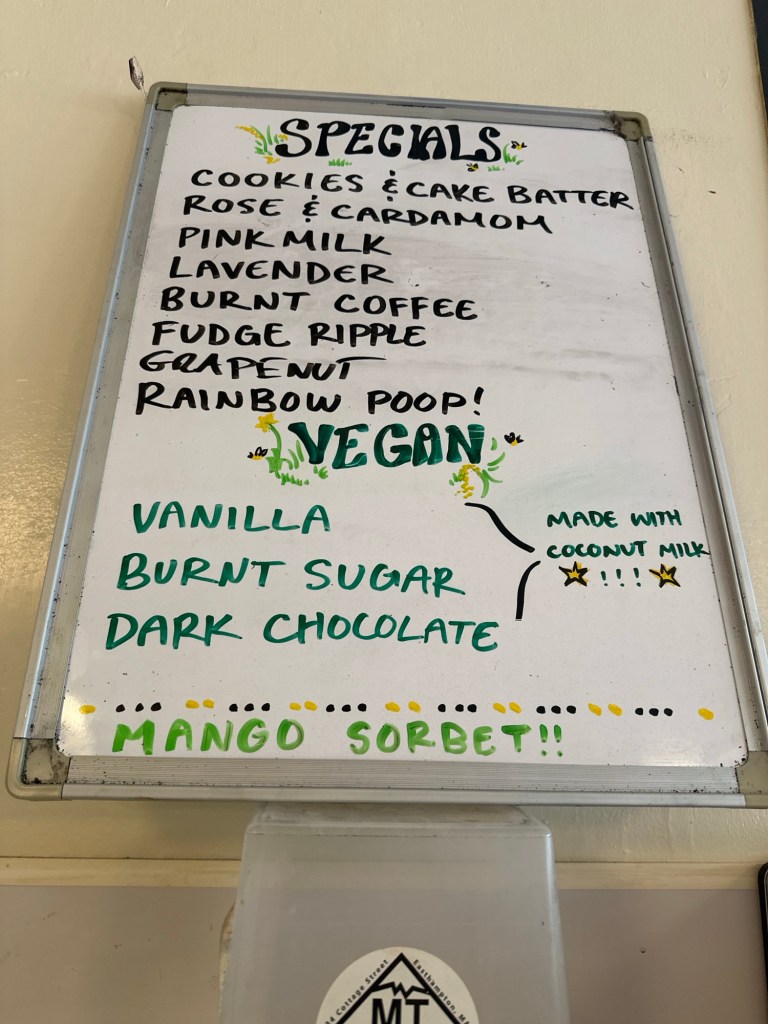 SPECIALS
COOKIES & CAKE BATTER
ROSE & CARDAMOM
PINK MILK
LAVENDER
BURNT COFFEE
FUDGE RIPPLE
GRAPENUT
RAINBOW POOP!
VEGAN
VANILLA
BURNT SUGAR
DARK CHOCOLATE
MADE WITH
COCONUT MILK
!!!
MANGO SORBET!!
Cottage Street
Easthampton,
MT